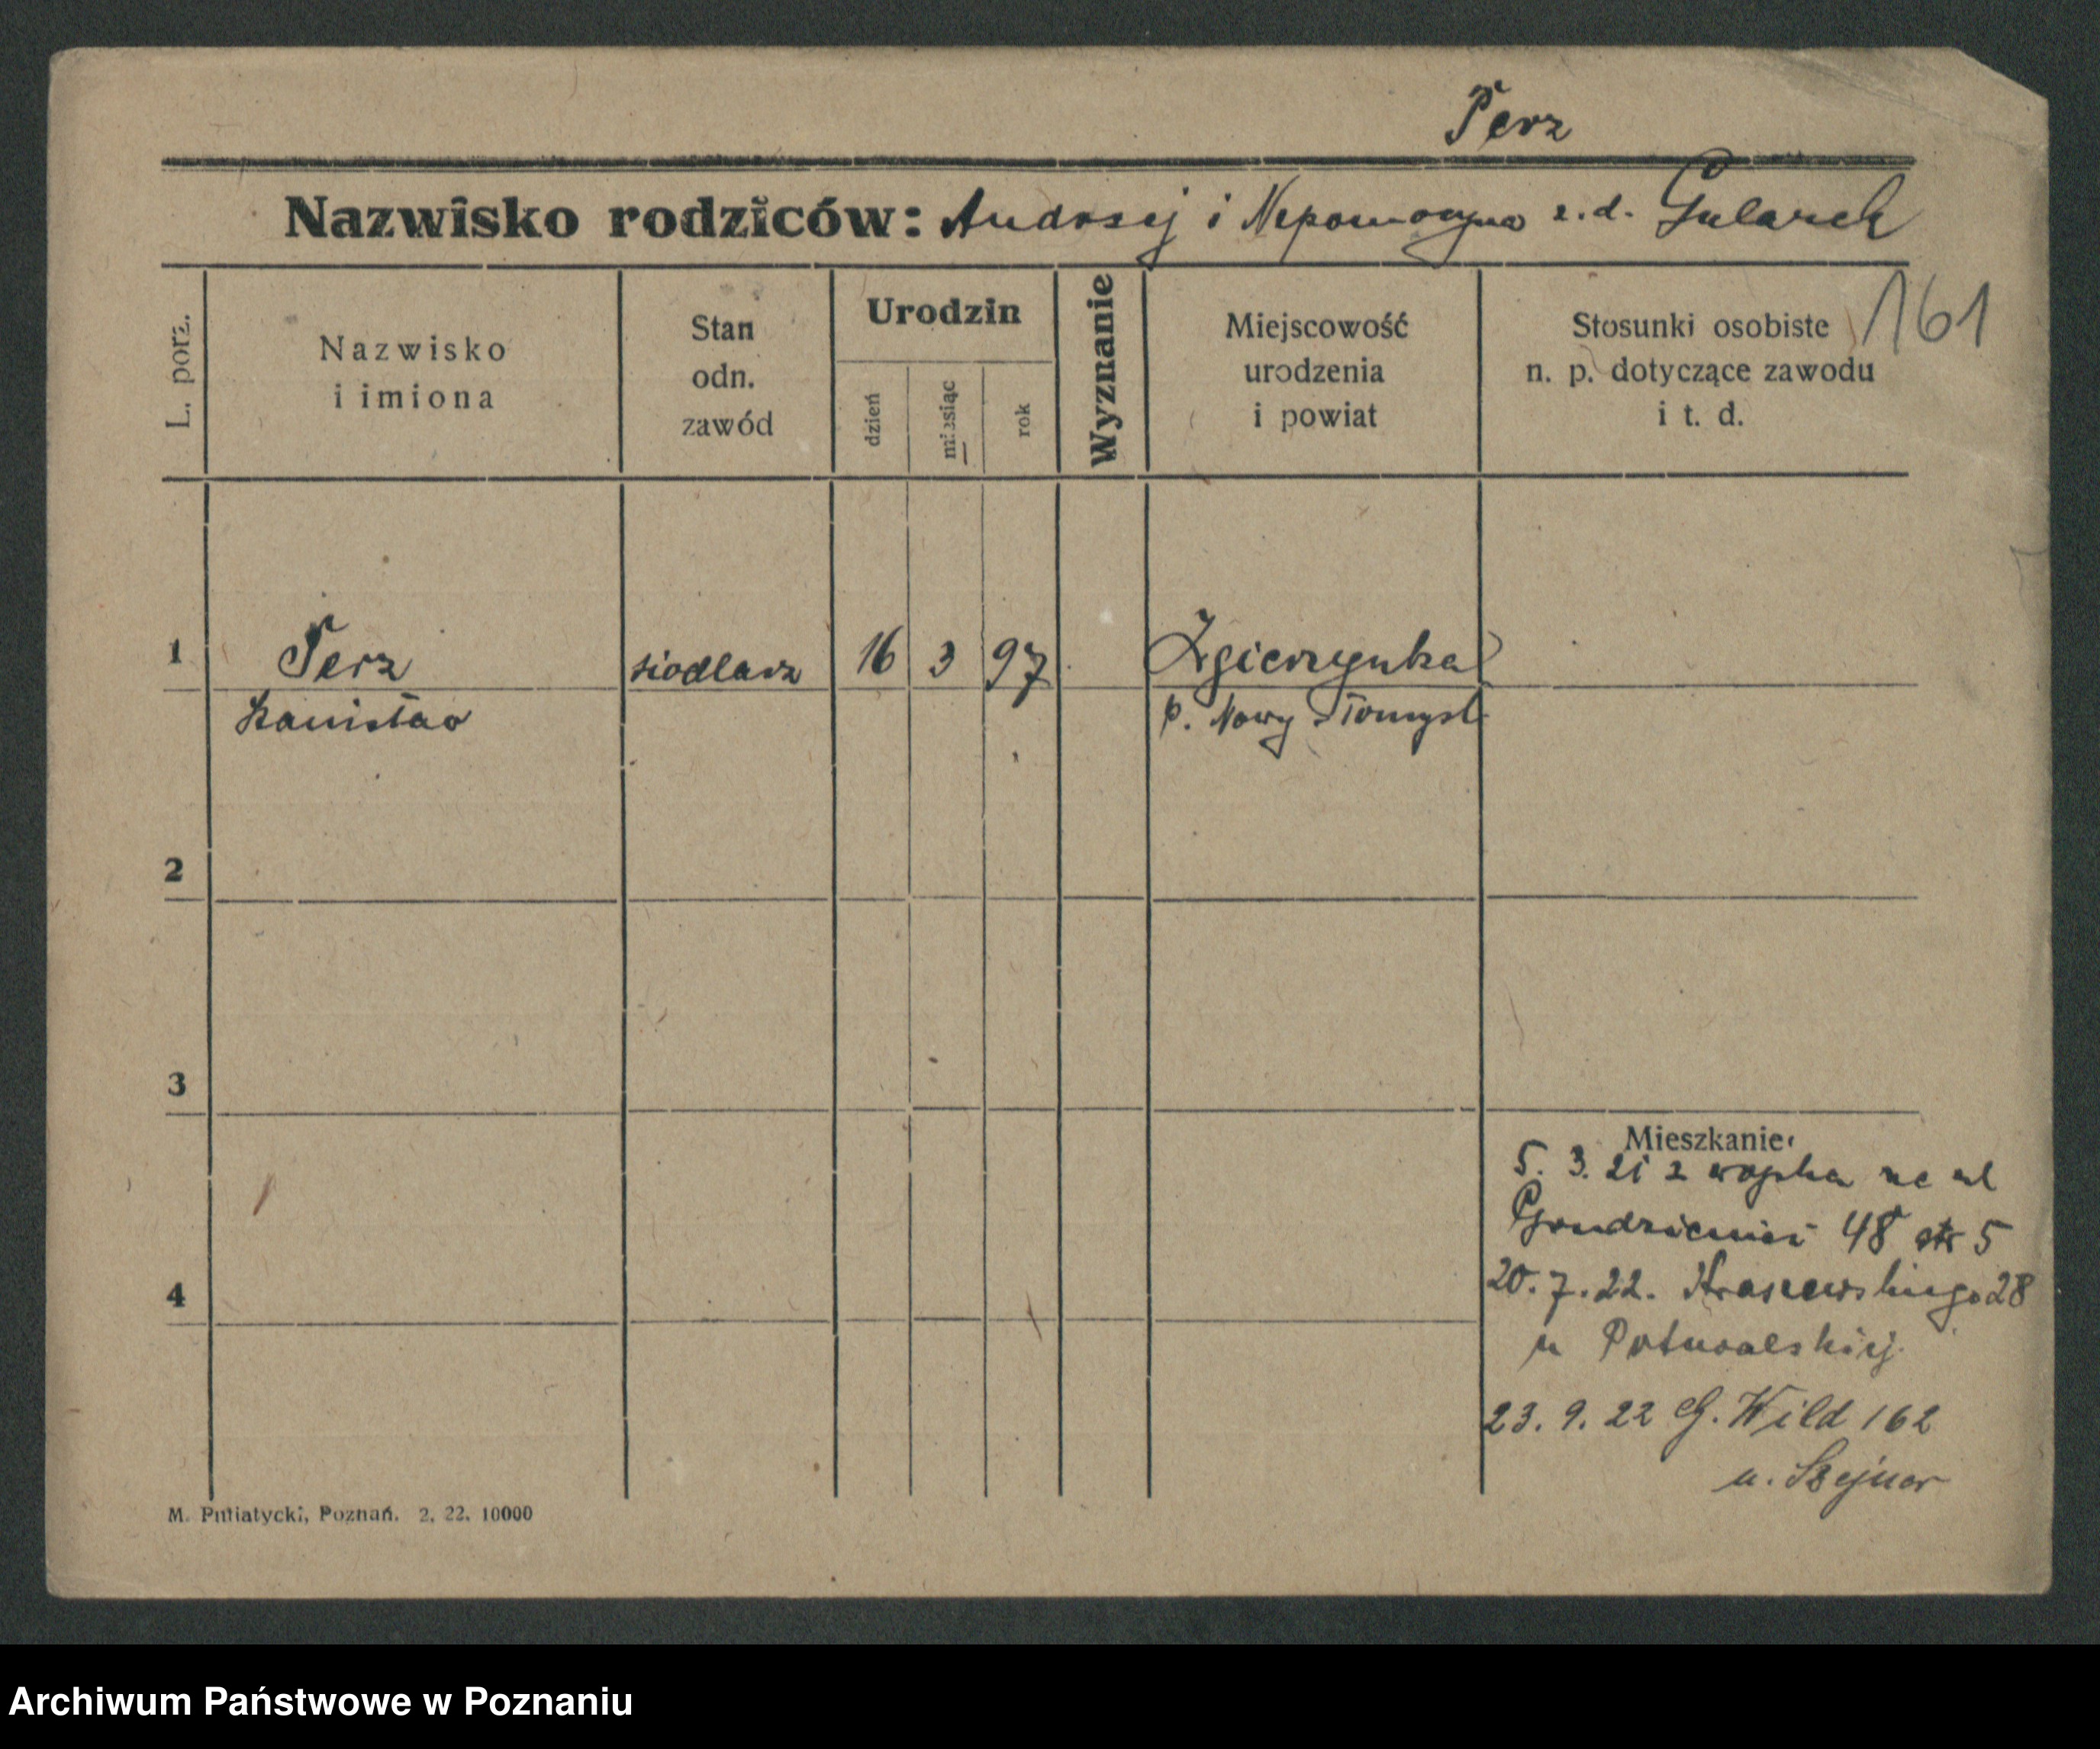 Perz
Nazwisko rodziców: Andrzej i Nepomocyna z.d. Gularek
161
L. porz.
Nazwisko
i imiona
Stan
odn.
zawód
Urodzin
dzień
miesiąc
rok
Wyznanie
Miejscowość
urodzenia
i powiat
Stosunki osobiste
n. p. dotyczące zawodu
i t. d.
1 Perz siodlarz 16 3 97 Zgierzynka
Stanisław p. Nowy Tomysl
2
3
Mieszkanie
5. 3. 21 z wojska na ul
48 5
4
20. 7. 22. Kraszewskiego 28
u
23. 9. 22 G. Wild 162
u.
M. Putiatycki, Poznań. 2, 22. 10000
Archiwum Państwowe w Poznaniu